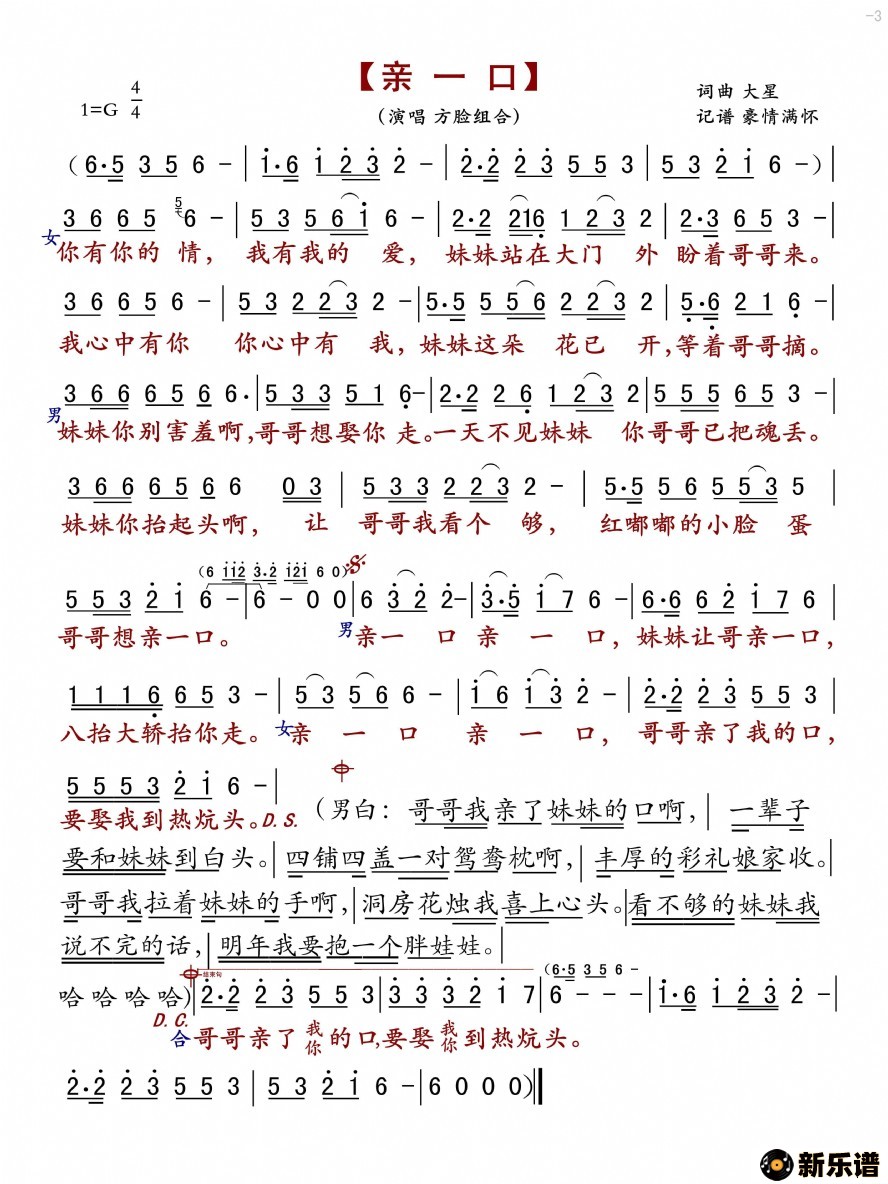 -3
【亲 一 口】
1=G 4/4
（演唱 方脸组合）
词曲 大星
记谱 豪情满怀
（6·5 3 5 6 -｜i·6 i 2 3 2 -｜2·2 2 3 5 5 3｜5 3 2 i 6 -）｜
3 6 6 5 5 6 -｜5 3 5 6 i 6 -｜2·2 216 1 2 3 2｜2·3 6 5 3 -｜
女 你有你的 情， 我有我的 爱， 妹妹站在大门 外 盼着哥哥来。
3 6 6 5 6 -｜5 3 2 2 3 2 -｜5·5 5 5 6 2 2 3 2｜5·6 2 1 6 -｜
我心中有你 你心中有 我，妹妹这朵 花已 开,等着哥哥摘。
3 6 6 6 5 6 6·｜5 3 3 5 1 6-｜2·2 2 6 1 2 3 2｜5 5 5 6 5 3 -｜
男 妹妹你别害羞啊,哥哥想娶你 走。一天不见妹妹 你哥哥已把魂丢。
3 6 6 6 5 6 6 0 3｜5 3 3 2 2 3 2 -｜5·5 5 5 5 3 5｜
妹妹你抬起头啊， 让 哥哥我看个 够， 红嘟嘟的小脸 蛋
（6 i i 2 3·2 i 2 i 6 0）
5 5 3 2 i 6 -｜6 - 0 0｜6 3 2 2-｜3·5 i 7 6 -｜6·6 6 2 i 7 6｜
哥哥想亲一口。 男 亲一 口 亲 一 口，妹妹让哥亲一口，
1 1 1 6 6 5 3 -｜5 3 5 6 6 -｜i 6 i 3 2 -｜2·2 2 3 5 5 3｜
八抬大轿抬你走。女 亲 一 口 亲 一 口， 哥哥亲了我的口，
5 5 5 3 2 i 6 -｜
要娶我到热炕头。D.S. （男白：哥哥我亲了妹妹的口啊，｜一辈子
要和妹妹到白头。｜四铺四盖一对鸳鸯枕啊，｜丰厚的彩礼娘家收。｜
哥哥我拉着妹妹的手啊，｜洞房花烛我喜上心头。｜看不够的妹妹我
说不完的话，｜明年我要抱一个胖娃娃。｜
结束句
（6·5 3 5 6 -
哈 哈 哈 哈）｜2·2 2 3 5 5 3｜3 3 3 2 i 7｜6 - - -｜i·6 i 2 3 2 -｜
D.C. 合 哥哥亲了 我 你 的口,要娶 我 你 到热炕头。
2·2 2 3 5 5 3｜5 3 2 i 6 -｜6 0 0 0）‖
新乐谱